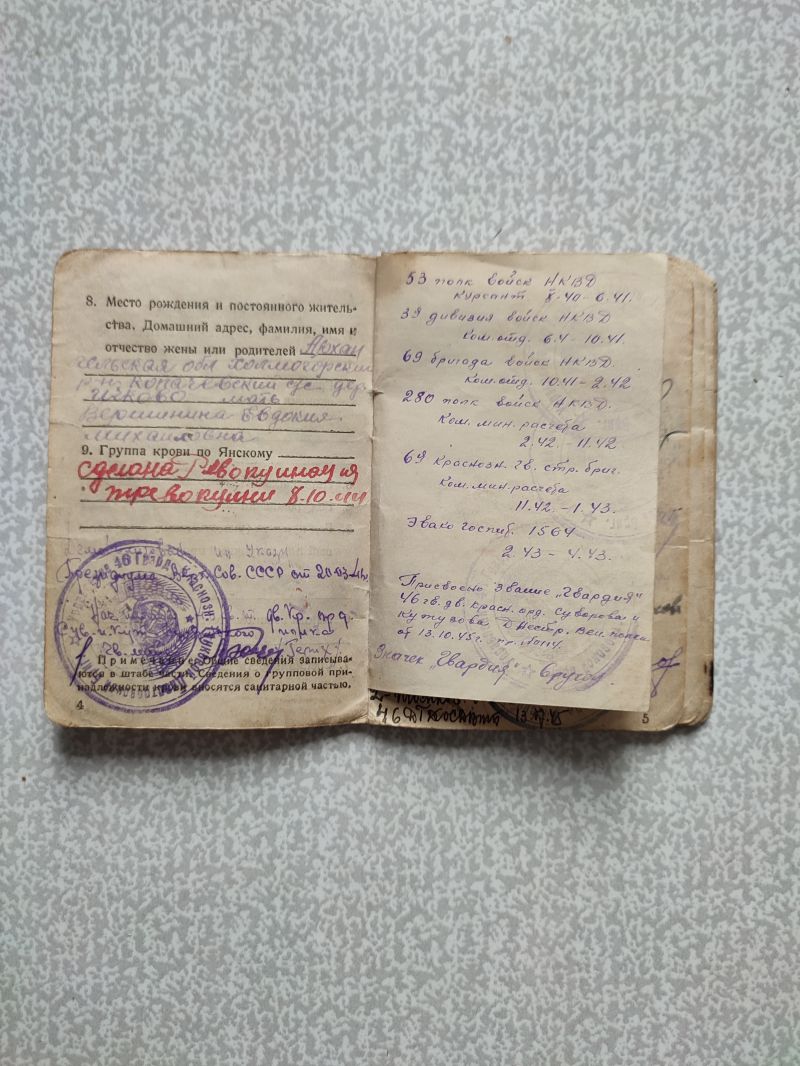 8. Место рождения и постоянного житель-
ства. Домашний адрес, фамилия, имя и
отчество жены или родителей Архан
гельская обл Холмогорский
р-н Копачевский с/с дер
мать
Вершинина Евдокия
Михайловна
9. Группа крови по Янскому
сделана Ревакцинация
8.10.44
Президиума Вер. Сов. СССР от
Примечание. Общие сведения записыва-
ются в штабе части. Сведения о групповой при-
надлежности крови вносятся санитарной частью.
4
53 полк войск НКВД
Курсант 8.40-6.41.
39 дивизия войск НКВД
Ком.отд. 6.4-10.41.
69 бригада войск НКВД.
Ком.отд. 10.41-2.42
280 полк войск НКВД.
Ком. мин. расчета
2.42. - 11.42
69 Краснозн. гв. стр. бриг.
Ком.мин.расчета
11.42. - 1.43.
Эвако госпит. 1564
2.43 - 4.43.
Присвоено звание "Гвардия"
46 гв. дв. красн. орд. Суворова и
Кутузова Днестр.
от 13.10.45г.
Значек "Гвардия" вручен
5